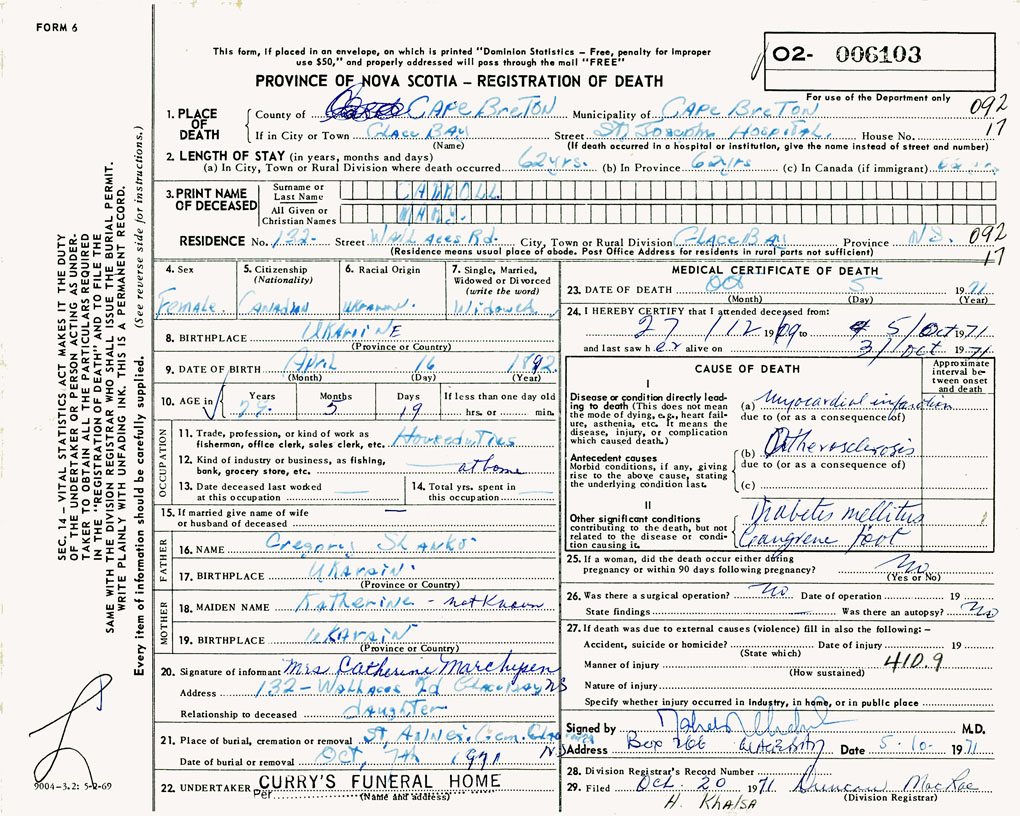 FORM 6
This form, if placed in an envelope, on which is printed "Dominion Statistics – Free, penalty for improper
use $50," and properly addressed will pass through the mail "FREE"
PROVINCE OF NOVA SCOTIA – REGISTRATION OF DEATH
O2- 006103
For use of the Department only
092
17
1. PLACE OF DEATH
County of CAPE BreTON Municipality of CAPE BreTON
If in City or Town Glace BAY Street St. Josephs Hospital. House No.
(Name) (If death occurred in a hospital or institution, give the name instead of street and number)
2. LENGTH OF STAY (in years, months and days)
(a) In City, Town or Rural Division where death occurred 62 yrs. (b) In Province 62 yrs (c) In Canada (if immigrant)
3. PRINT NAME OF DECEASED
Surname or Last Name CARROLL
All Given or Christian Names MARY.
RESIDENCE No. 132- Street Wallaces Rd. City, Town or Rural Division Glace BAY Province N.S. 092
(Residence means usual place of abode. Post Office Address for residents in rural parts not sufficient) 17
4. Sex Female
5. Citizenship (Nationality) Canadian
6. Racial Origin
7. Single, Married, Widowed or Divorced (write the word) Widowed
8. BIRTHPLACE UKArINE
(Province or Country)
9. DATE OF BIRTH April 16 1892
(Month) (Day) (Year)
10. AGE in Years Months 5 Days 19 If less than one day old
hrs. or min.
OCCUPATION
11. Trade, profession, or kind of work as fisherman, office clerk, sales clerk, etc. House duties
12. Kind of industry or business, as fishing, bank, grocery store, etc. at home
13. Date deceased last worked at this occupation
14. Total yrs. spent in this occupation
15. If married give name of wife or husband of deceased —
FATHER
16. NAME Gregory Shanko
17. BIRTHPLACE UKArain
(Province or Country)
MOTHER
18. MAIDEN NAME Katherine - not Known
19. BIRTHPLACE UKArain
(Province or Country)
20. Signature of informant Mrs. Catherine
Address 132- Wallaces Rd Glace Bay NS
Relationship to deceased daughter
21. Place of burial, cremation or removal St. Anne's. Cem. Glace Bay
Date of burial or removal Oct, 7th 1971 N.S
22. UNDERTAKER CURRY'S FUNERAL HOME
Per
(Name and address)
MEDICAL CERTIFICATE OF DEATH
23. DATE OF DEATH Oct 5 1971
(Month) (Day) (Year)
24. I HEREBY CERTIFY that I attended deceased from:
27/12 1969 to 5/Oct 1971
and last saw her alive on 3/Oct 1971
CAUSE OF DEATH
Approximate interval between onset and death
I
Disease or condition directly leading to death (This does not mean the mode of dying, e.g., heart failure, asthenia, etc. It means the disease, injury, or complication which caused death.)
(a) Myocardial infarction
due to (or as a consequence of)
Antecedent causes
Morbid conditions, if any, giving rise to the above cause, stating the underlying condition last.
(b) Atherosclerosis
due to (or as a consequence of)
(c)
II
Other significant conditions
contributing to the death, but not related to the disease or condition causing it.
Diabetis mellitus
Gangrene foot
25. If a woman, did the death occur either during
pregnancy or within 90 days following pregnancy? No
(Yes or No)
26. Was there a surgical operation? No Date of operation 19
State findings Was there an autopsy? No
27. If death was due to external causes (violence) fill in also the following: –
Accident, suicide or homicide? Date of injury 19
(State which)
Manner of injury 410.9
(How sustained)
Nature of injury
Specify whether injury occurred in industry, in home, or in public place
Signed by M.D.
Address Box 266 GLACE BAY Date 5-10- 1971
28. Division Registrar's Record Number
29. Filed Oct. 20 1971 Duncan MacRae
(Division Registrar)
H. Khalsa
SEC. 14 – VITAL STATISTICS ACT MAKES IT THE DUTY
OF THE UNDERTAKER OR PERSON ACTING AS UNDER-
TAKER TO OBTAIN ALL THE PARTICULARS REQUIRED
IN THE "REGISTRATION OF DEATH" AND TO FILE THE
SAME WITH THE DIVISION REGISTRAR WHO SHALL ISSUE THE BURIAL PERMIT.
WRITE PLAINLY WITH UNFADING INK. THIS IS A PERMANENT RECORD.
Every item of information should be carefully supplied. (See reverse side for instructions.)
9004-3.2: 5-2-69